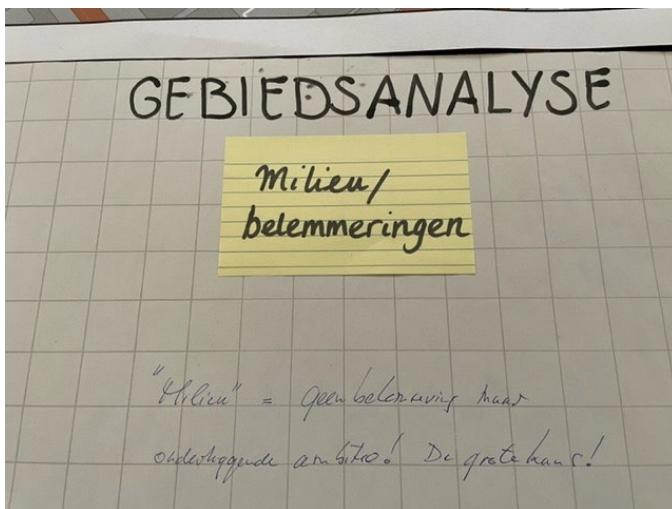 GEBIEDSANALYSE
Milieu/
belemmeringen
"Milieu" = geen belemmering maar
onderliggende ambitie! De grote kans!